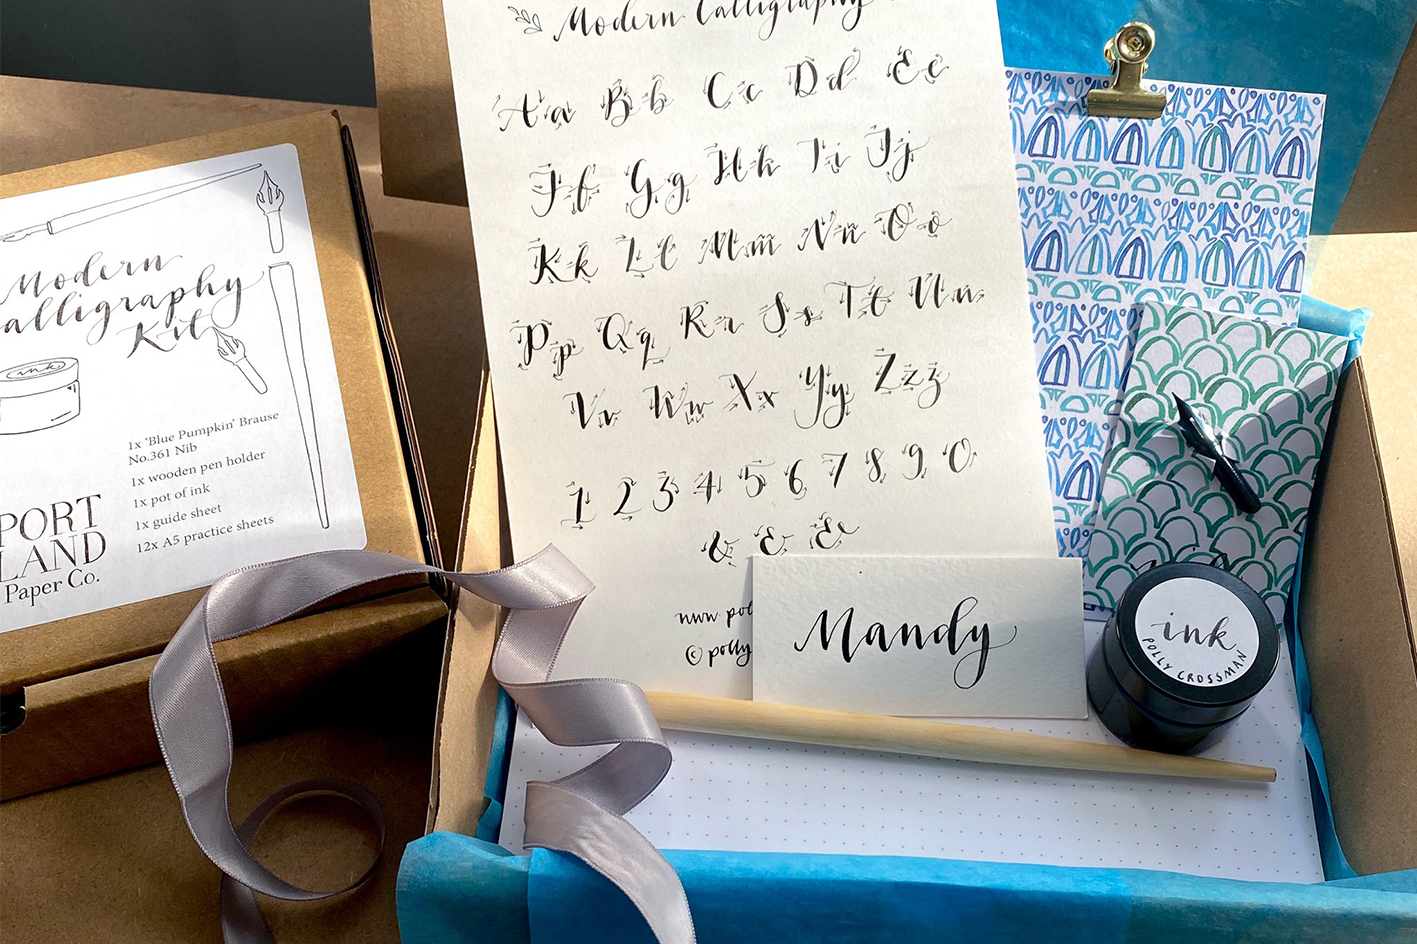 Modern
Calligraphy
Kit
ink
1x 'Blue Pumpkin' Brause
No.361 Nib
1x wooden pen holder
1x pot of ink
1x guide sheet
12x A5 practice sheets
PORT
LAND
Paper Co.
Modern Calligraphy
Aa Bb Cc Dd Ee
Ff Gg Hh Ii Jj
Kk Ll Mm Nn Oo
Pp Qq Rr Ss Tt Uu
Vv Ww Xx Yy Zzz
1 2 3 4 5 6 7 8 9 0
& & &
www pol
© polly
Mandy
ink
POLLY CROSSMAN